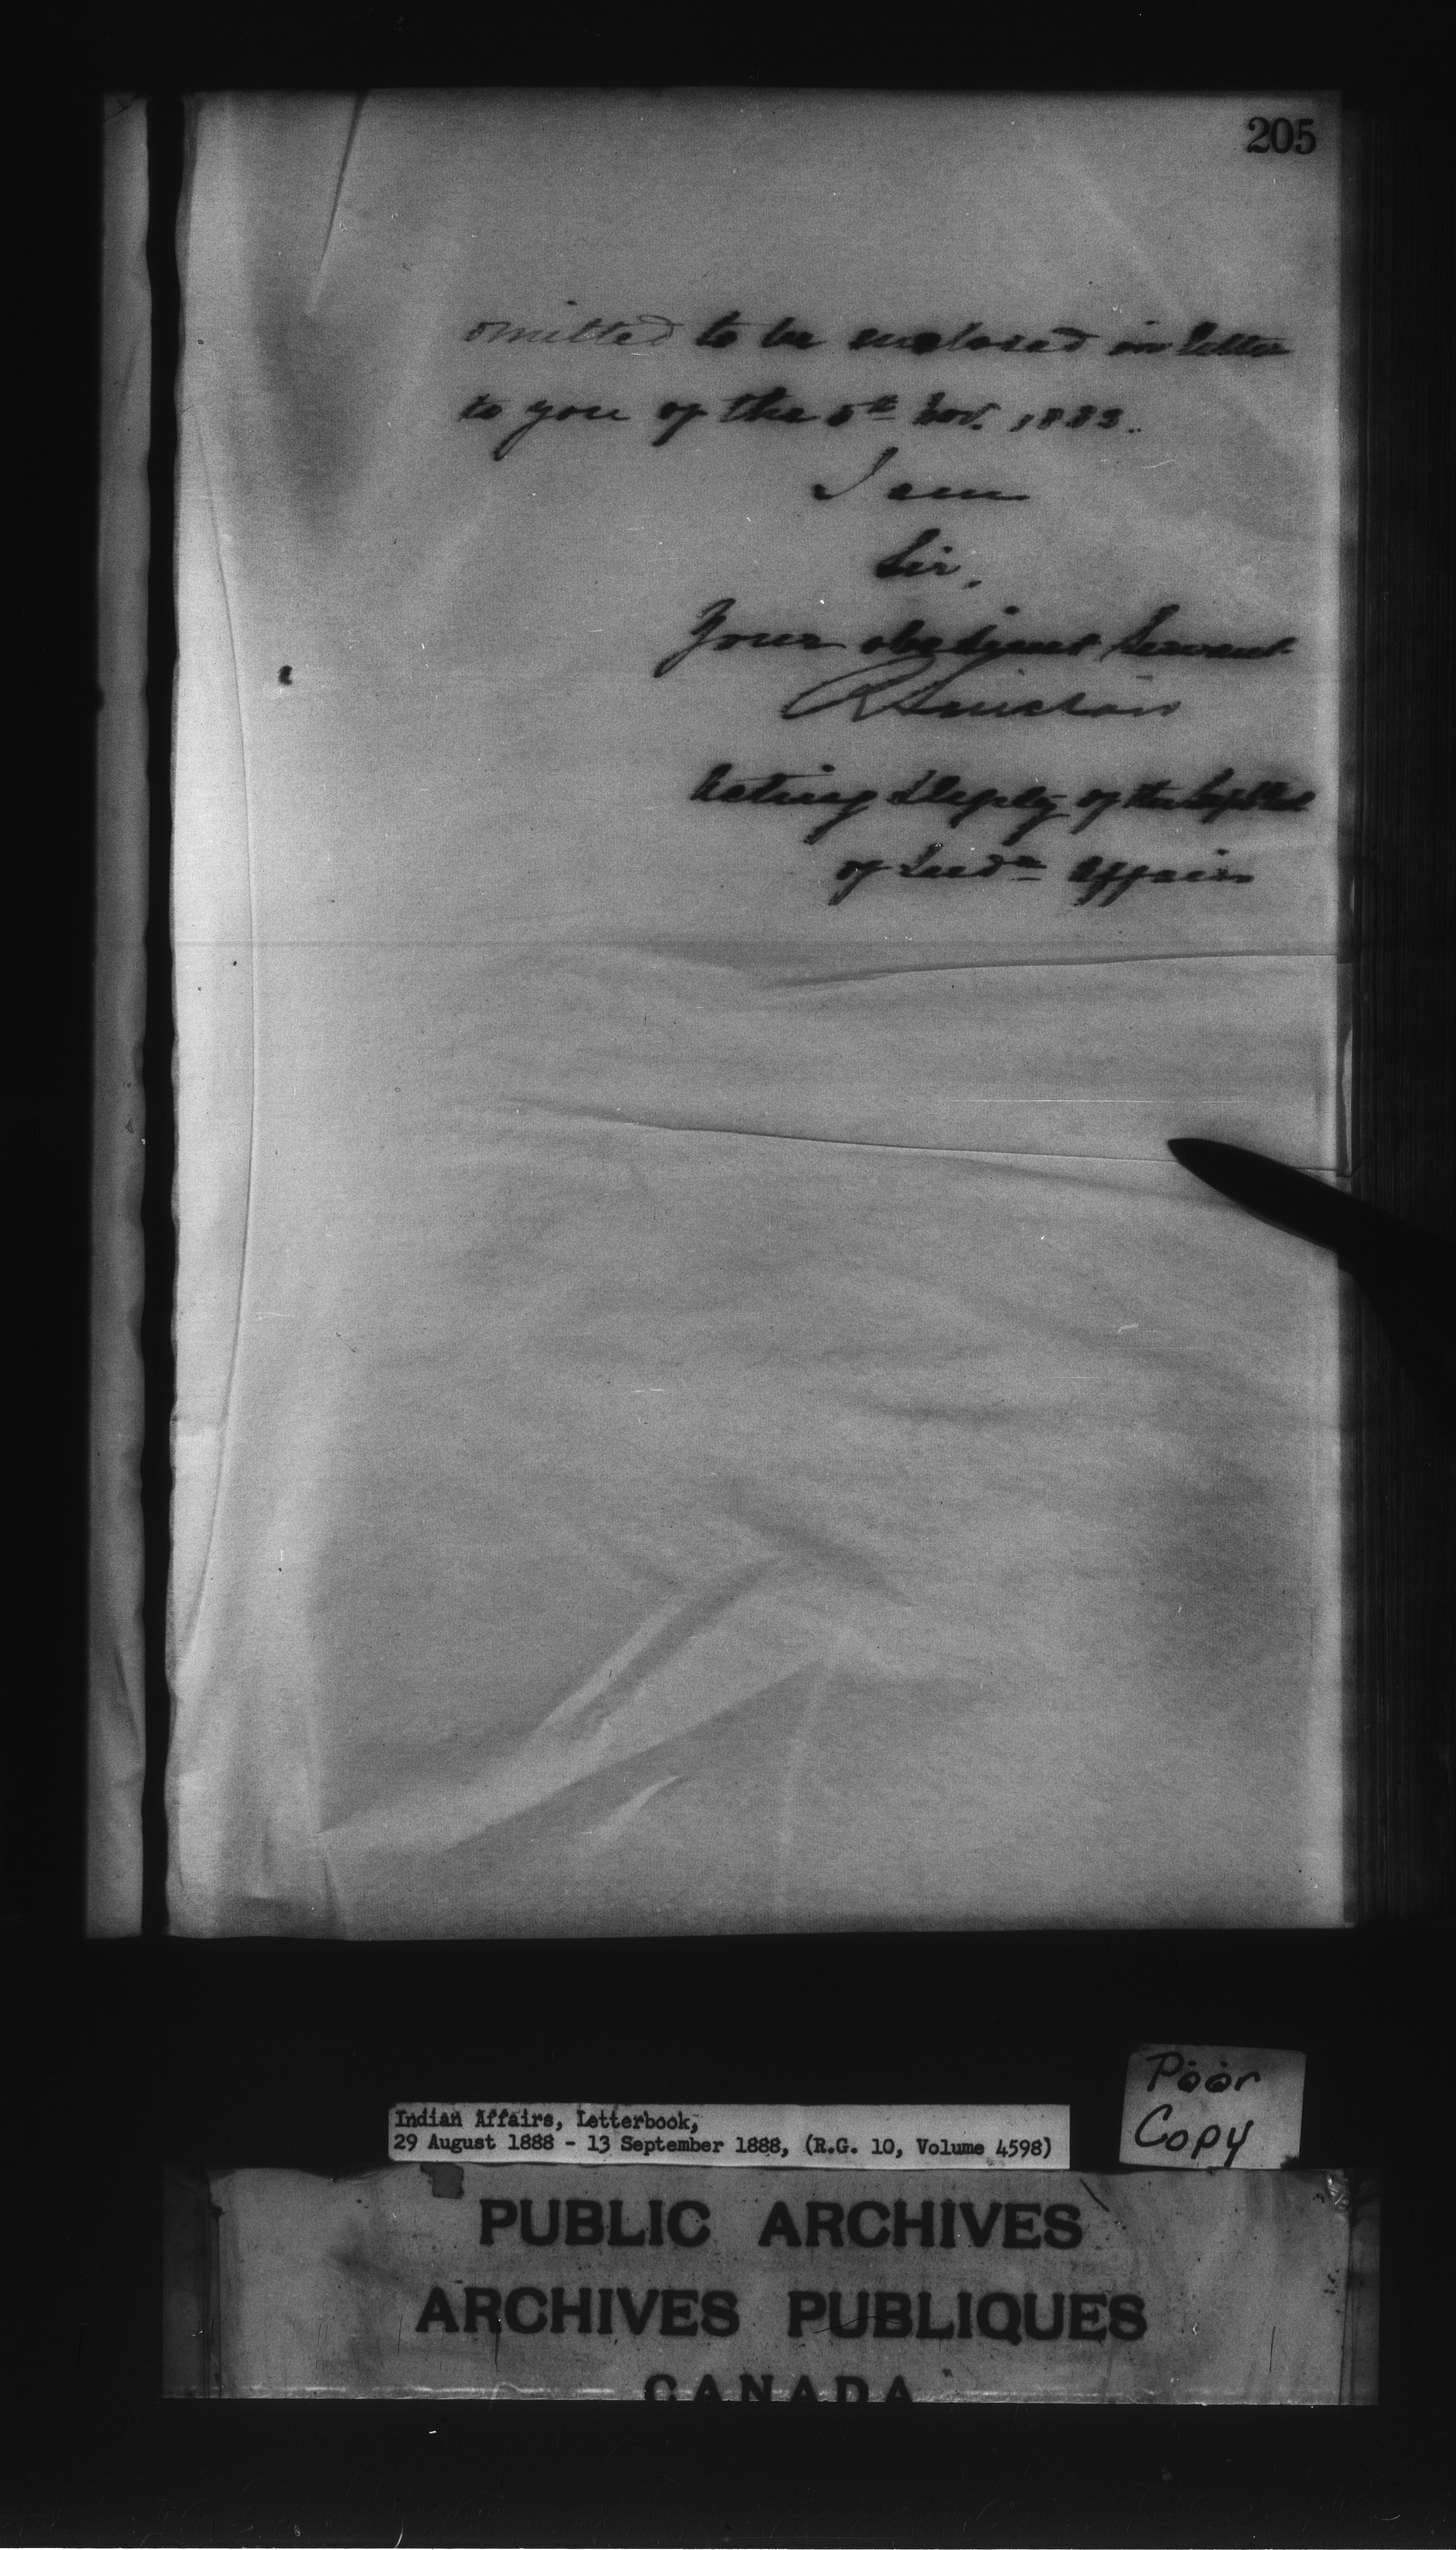 205
omitted to be enclosed in letter
to you of the 5th Nov. 1883.
I am
Sir,
Your obedient Servant
R Sinclair
Acting Deputy of the Supt Genl
of Indn Affairs
Poor
Copy
Indian Affairs, Letterbook,
29 August 1888 - 13 September 1888, (R.G. 10, Volume 4598)
PUBLIC ARCHIVES
ARCHIVES PUBLIQUES
CANADA